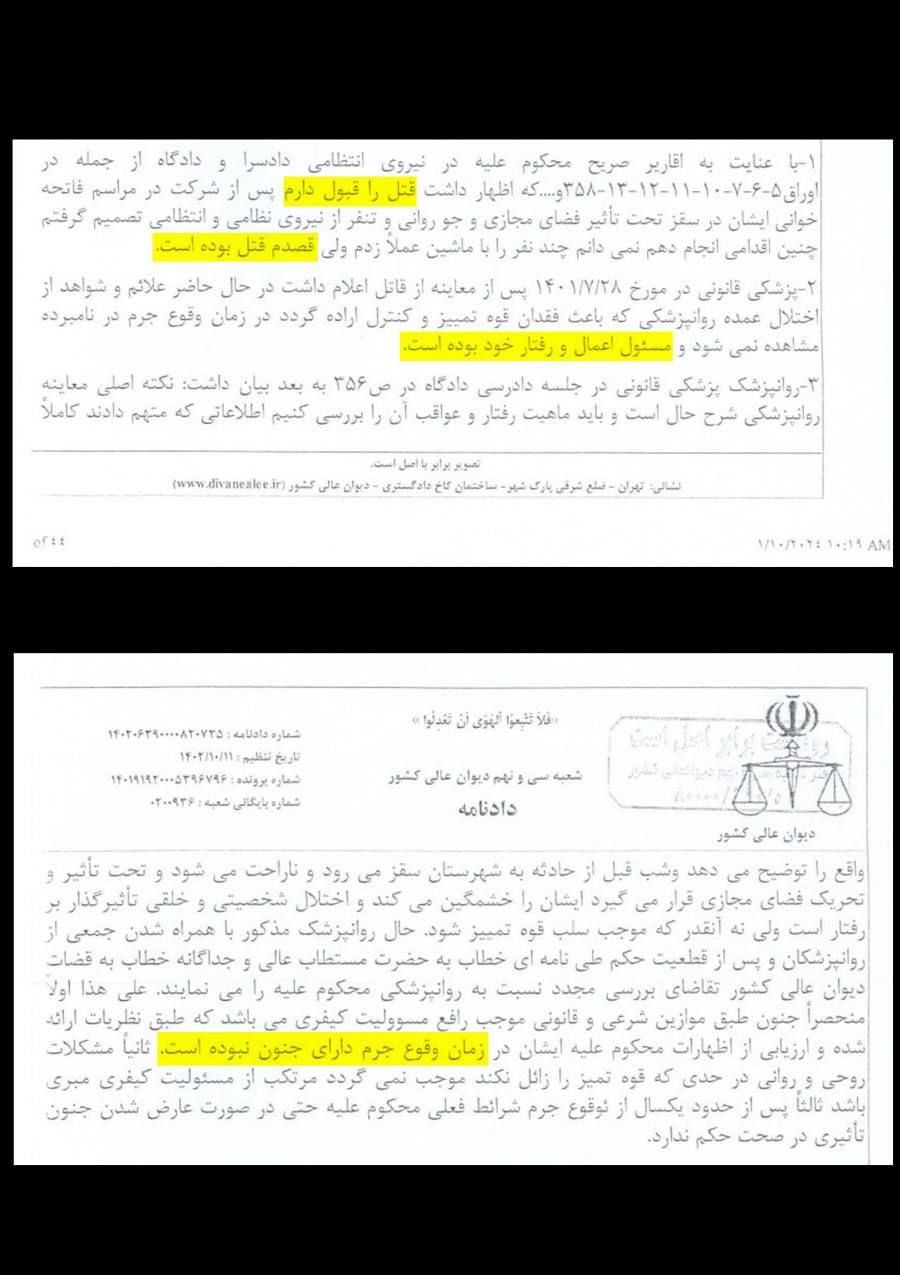 ۱-با عنایت به اقاریر صریح محکوم علیه در نیروی انتظامی دادسرا و دادگاه از جمله در
اوراق۵-۶-۷-۱۰-۱۱-۱۲-۱۳-۳۵۸و....که اظهار داشت قتل را قبول دارم پس از شرکت در مراسم فاتحه
خوانی ایشان در سقز تحت تأثیر فضای مجازی و جو روانی و تنفر از نیروی نظامی و انتظامی تصمیم گرفتم
چنین اقدامی انجام دهم نمی دانم چند نفر را با ماشین عملاً زدم ولی قصدم قتل بوده است.
۲-پزشکی قانونی در مورخ ۱۴۰۱/۷/۲۸ پس از معاینه از قاتل اعلام داشت در حال حاضر علائم و شواهد از
اختلال عمده روانپزشکی که باعث فقدان قوه تمییز و کنترل اراده گردد در زمان وقوع جرم در نامبرده
مشاهده نمی شود و مسئول اعمال و رفتار خود بوده است.
۳-روانپزشک پزشکی قانونی در جلسه دادرسی دادگاه در ص۳۵۶ به بعد بیان داشت: نکته اصلی معاینه
روانپزشکی شرح حال است و باید ماهیت رفتار و عواقب آن را بررسی کنیم اطلاعاتی که متهم دادند کاملاً
تصویر برابر با اصل است.
نشانی: تهران - ضلع شرقی پارک شهر- ساختمان کاخ دادگستری - دیوان عالی کشور (www.divanealee.ir)
of ٤٤
١/١٠/٢٠٢٤ ١٠:١٩ AM
«فَلاَ تَتَّبِعوُا اَلهَوَی اَنْ تَعْدِلُوا»
شماره دادنامه : ۱۴۰۲۰۶۳۹۰۰۰۰۸۲۰۷۲۵
تاریخ تنظیم : ۱۴۰۲/۱۰/۱۱
شعبه سی و نهم دیوان عالی کشور
شماره پرونده : ۱۴۰۱۹۱۹۲۰۰۰۵۳۹۶۷۹۶
دادنامه
شماره بایگانی شعبه : ۰۲۰۰۹۳۶
دیوان عالی کشور
واقع را توضیح می دهد وشب قبل از حادثه به شهرستان سقز می رود و ناراحت می شود و تحت تأثیر و
تحریک فضای مجازی قرار می گیرد ایشان را خشمگین می کند و اختلال شخصیتی و خلقی تأثیرگذار بر
رفتار است ولی نه آنقدر که موجب سلب قوه تمییز شود. حال روانپزشک مذکور با همراه شدن جمعی از
روانپزشکان و پس از قطعیت حکم طی نامه ای خطاب به حضرت مستطاب عالی و جداگانه خطاب به قضات
دیوان عالی کشور تقاضای بررسی مجدد نسبت به روانپزشکی محکوم علیه را می نمایند. علی هذا اولاً
منحصراً جنون طبق موازین شرعی و قانونی موجب رافع مسوولیت کیفری می باشد که طبق نظریات ارائه
شده و ارزیابی از اظهارات محکوم علیه ایشان در زمان وقوع جرم دارای جنون نبوده است. ثانیاً مشکلات
روحی و روانی در حدی که قوه تمیز را زائل نکند موجب نمی گردد مرتکب از مسئولیت کیفری مبری
باشد ثالثاً پس از حدود یکسال از ئوقوع جرم شرائط فعلی محکوم علیه حتی در صورت عارض شدن جنون
تأثیری در صحت حکم ندارد.